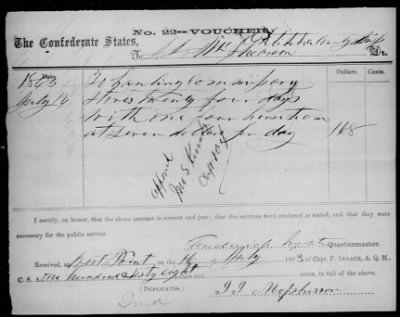 No. 22—VOUCHER.
The Confederate States,
To
Dr.
Date
Dollars.
Cents.
1863
July 14
To hauling Commissary
Stores twenty four days
with one four horse team
at seven dollars per day 168
Approved
Capt
I certify, on honor, that the above amount is correct and just; that the services were rendered as stated, and that they were necessary
for the public service.
Quartermaster.
Received West Point, the 14 of July 1863, of Capt. F. INGATE, A. Q. M.,
C. S. One hundred sixty eight cents, in full of the above.
(DUPLICATES.)
McPherson